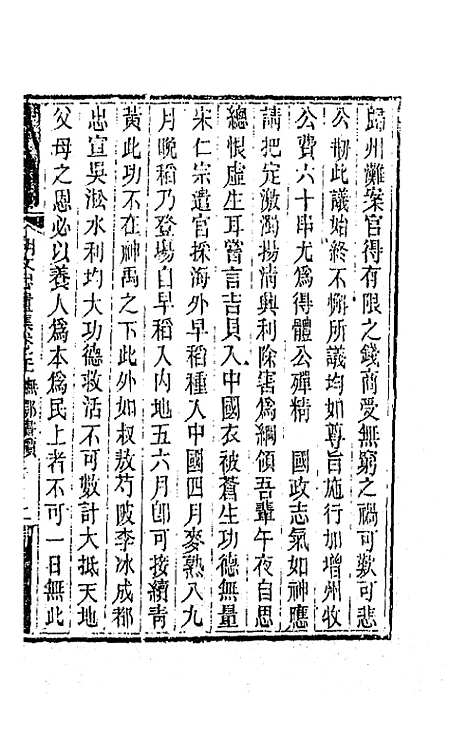 歸州灘案官得有限之錢商受無窮之禍可歎可悲
公刱此議始終不懈所議均如尊旨施行加增州牧
公費六十串尤爲得體公殫精　國政志氣如神應
請把定激濁揚淸興利除害爲綱領吾輩午夜自思
總恨虛生耳嘗言吉貝入中國衣被蒼生功德無量
宋仁宗遣官採海外早稻種入中國四月麥熟八九
月晚稻乃登場自早稻入內地五六月卽可接續靑
黃此功不在神禹之下此外如叔敖芍陂李冰成都
忠宣吳淞水利均大功德救活不可數計大抵天地
父母之恩必以養人爲本爲民上者不可一日無此
胡文忠遺集卷
撫鄂書牘